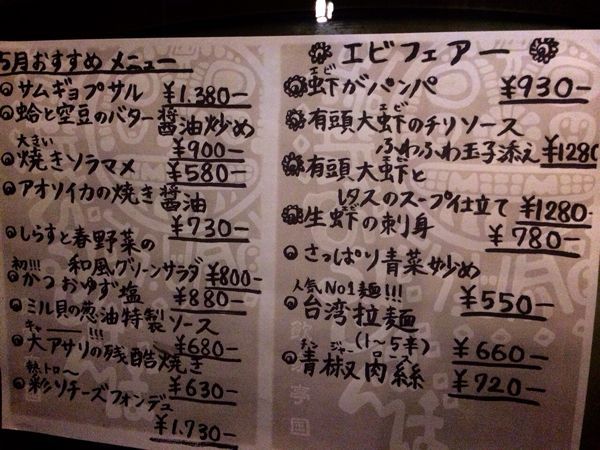 5月おすすめ メニュー
サムギョプサル ¥1.380-
蛤と空豆のバター醤油炒め
¥900-
大きい
焼きソラマメ ¥580-
アオリイカの焼き醤油
¥730-
しらすと春野菜の
和風グリーンサラダ ¥800-
初!!!
かつおゆず塩 ¥880-
ミル貝の葱油特製ソース
¥680-
キャー!!!
大アサリの残酷焼き
¥630-
熱トロ〜
彩りチーズフォンデュ
¥1.730-
エビフェアー
エビ
蝦がパンパ ¥930-
エビ
有頭大蝦のチリソース
ふわふわ玉子添え ¥1280
エビ
有頭大蝦と
レタスのスープ仕立て ¥1280-
生蝦の刺身
¥780-
さっぱり青菜炒め
¥550-
人気No1麺!!!
台湾拉麺
(1〜5辛) ¥660-
チンジャーロース
青椒肉絲 ¥720-